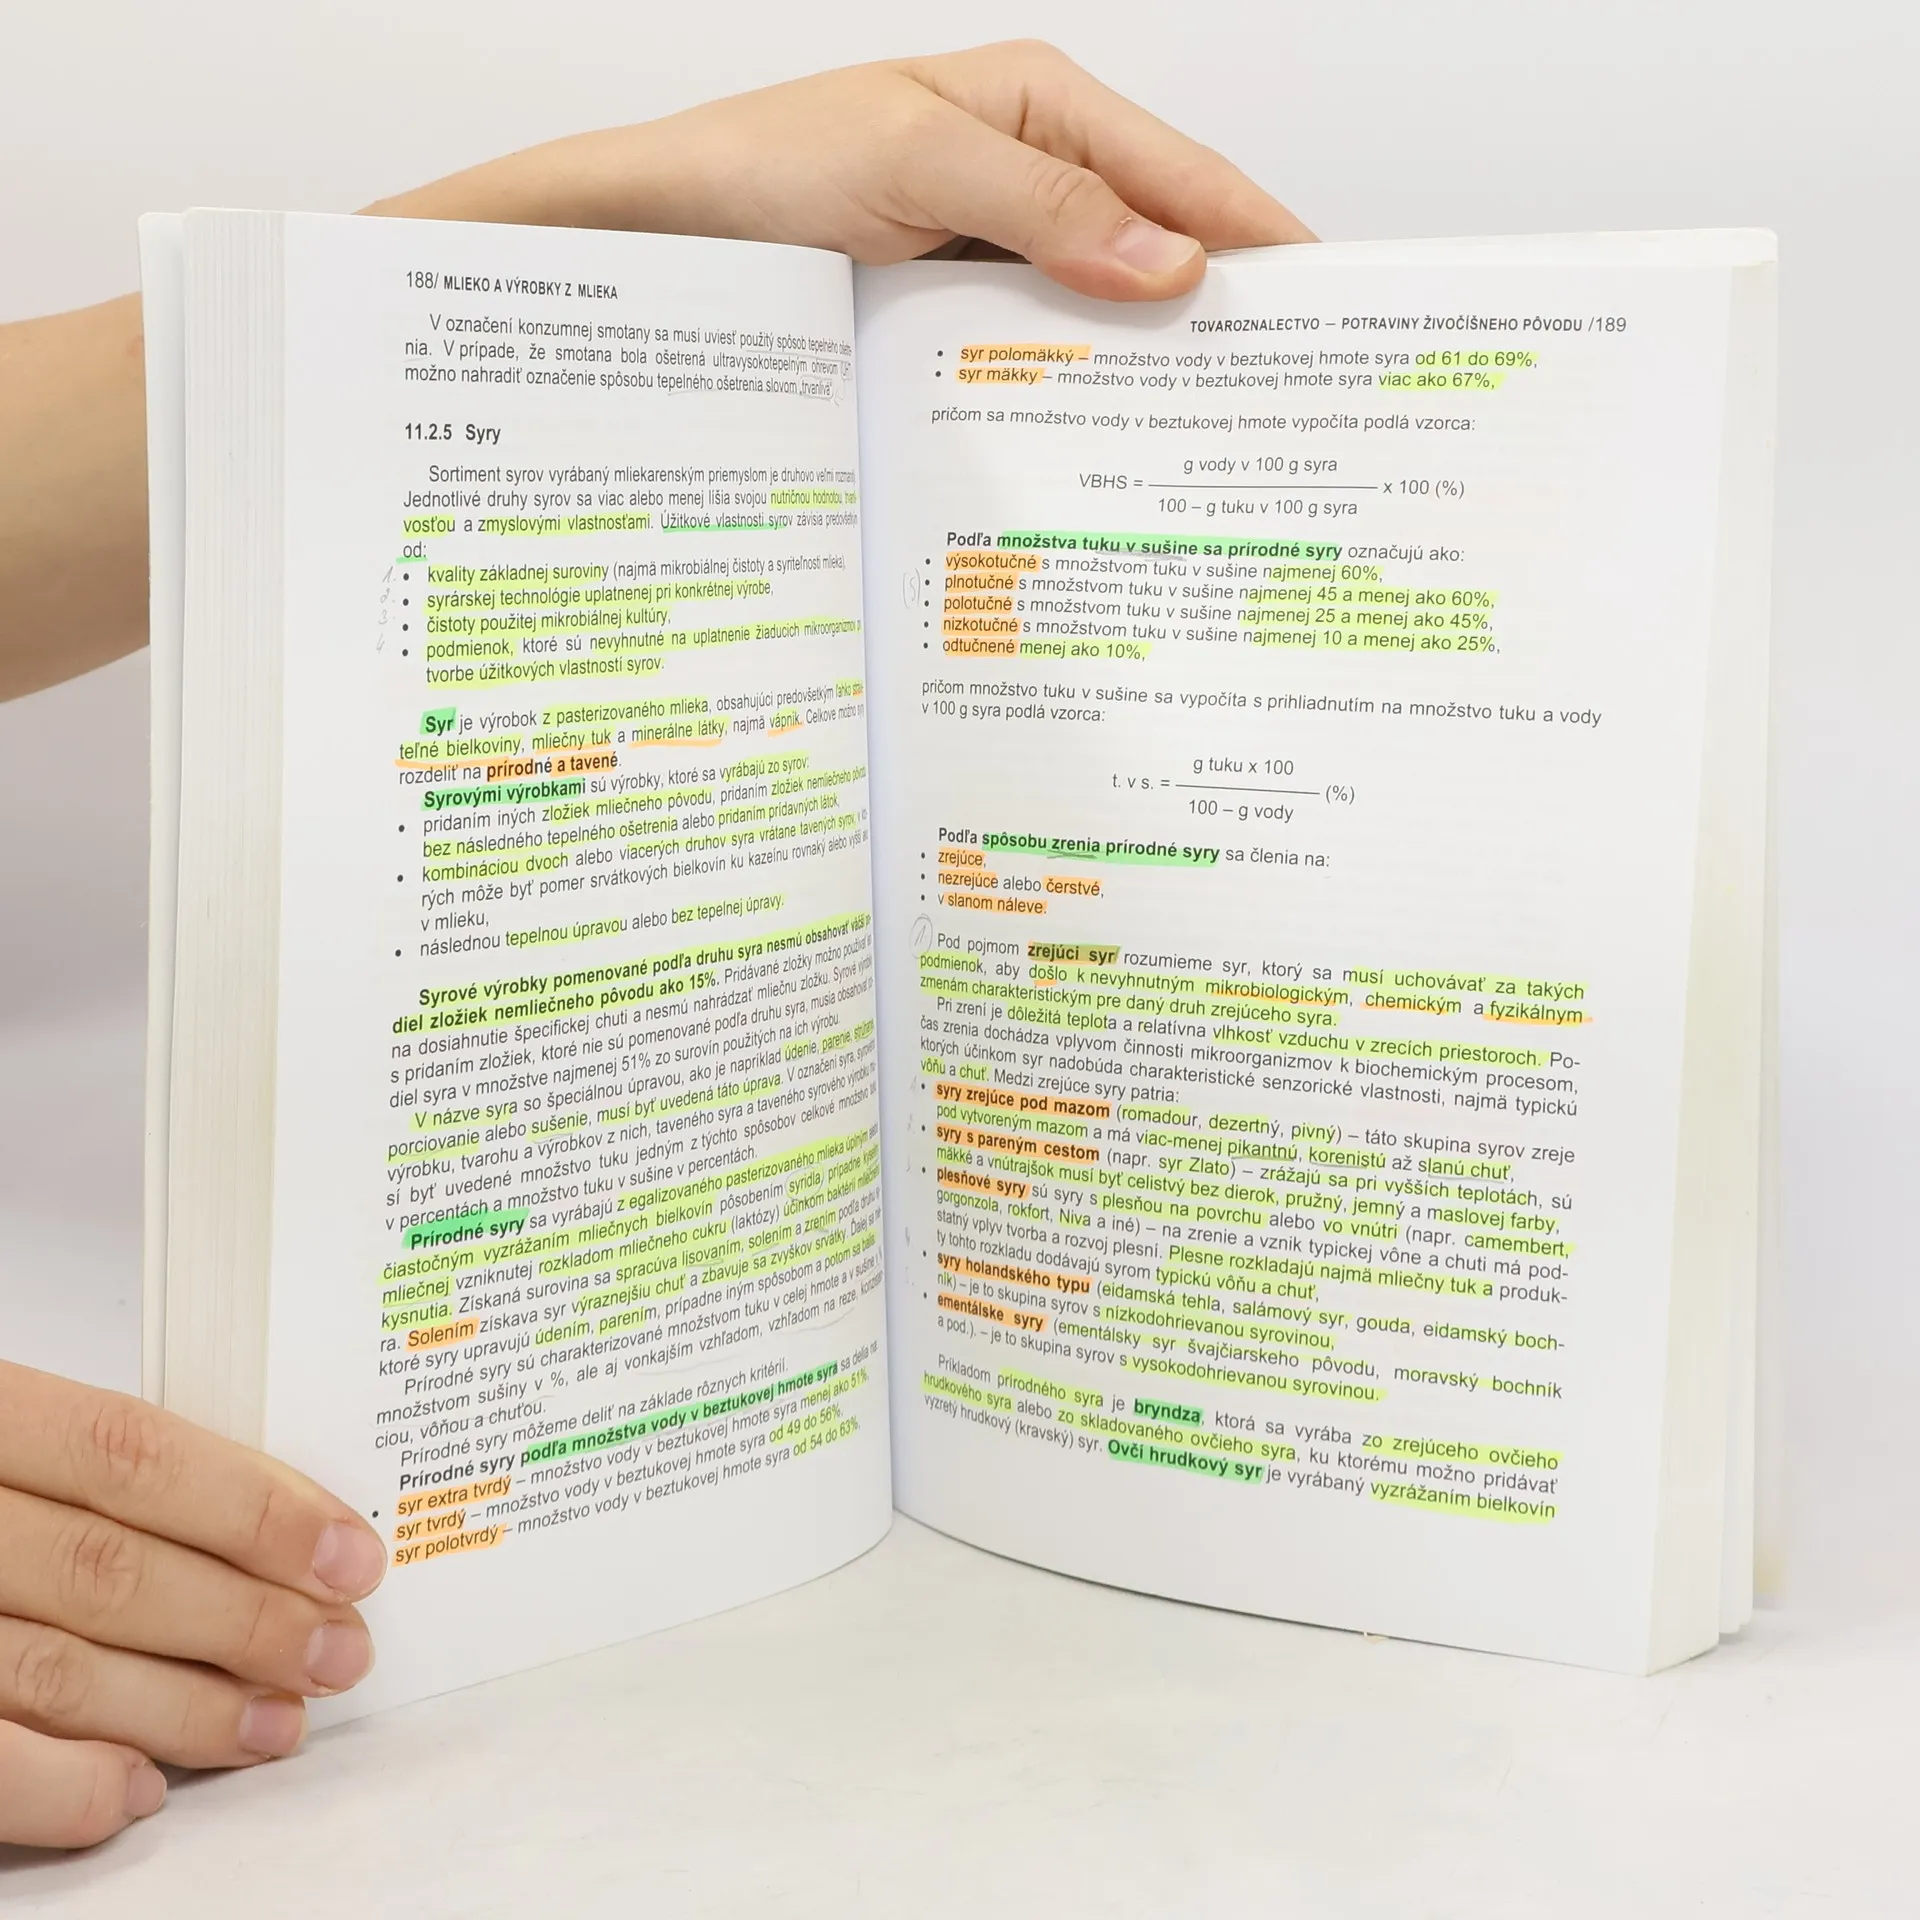 188/ MLIEKO A VÝROBKY Z MLIEKA
V označení konzumnej smotany sa musí uviesť použitý spôsob tepelného
nia. V prípade, že smotana bola ošetrená ultravysokotepelným ohrevom
možno nahradiť označenie spôsobu tepelného ošetrenia slovom „trvanlivá“.
11.2.5 Syry
Sortiment syrov vyrábaný mliekarenským priemyslom je druhovo veľmi
Jednotlivé druhy syrov sa viac alebo menej líšia svojou nutričnou hodnotou,
vosťou a zmyslovými vlastnosťami. Úžitkové vlastnosti syrov závisia predovšetkým
od:
1. • kvality základnej suroviny (najmä mikrobiálnej čistoty a syriteľnosti mlieka),
2. • syrárskej technológie uplatnenej pri konkrétnej výrobe,
3. • čistoty použitej mikrobiálnej kultúry,
4 • podmienok, ktoré sú nevyhnutné na uplatnenie žiaducich mikroorganizmov
tvorbe úžitkových vlastností syrov.
Syr je výrobok z pasterizovaného mlieka, obsahujúci predovšetkým ľahko
teľné bielkoviny, mliečny tuk a minerálne látky, najmä vápnik. Celkove možno
rozdeliť na prírodné a tavené.
Syrovými výrobkami sú výrobky, ktoré sa vyrábajú zo syrov:
• pridaním iných zložiek mliečneho pôvodu, pridaním zložiek nemliečneho pôvodu
bez následného tepelného ošetrenia alebo pridaním prídavných látok,
• kombináciou dvoch alebo viacerých druhov syra vrátane tavených syrov,
rých môže byť pomer srvátkových bielkovín ku kazeínu rovnaký alebo vyšší ako
v mlieku,
• následnou tepelnou úpravou alebo bez tepelnej úpravy.
Syrové výrobky pomenované podľa druhu syra nesmú obsahovať väčší
diel zložiek nemliečneho pôvodu ako 15%. Pridávané zložky možno používať
na dosiahnutie špecifickej chuti a nesmú nahrádzať mliečnu zložku. Syrové výrobky
s pridaním zložiek, ktoré nie sú pomenované podľa druhu syra, musia obsahovať
diel syra v množstve najmenej 51% zo surovín použitých na ich výrobu.
V názve syra so špeciálnou úpravou, ako je napríklad údenie, parenie,
porciovanie alebo sušenie, musí byť uvedená táto úprava. V označení syra, syrového
výrobku, tvarohu a výrobkov z nich, taveného syra a taveného syrového výrobku
sí byť uvedené množstvo tuku jedným z týchto spôsobov celkové množstvo
v percentách a množstvo tuku v sušine v percentách.
Prírodné syry sa vyrábajú z egalizovaného pasterizovaného mlieka úplným
čiastočným vyzrážaním mliečnych bielkovín pôsobením syridla, prípadne
mliečnej vzniknutej rozkladom mliečneho cukru (laktózy) účinkom baktérií
kysnutia. Získaná surovina sa spracúva lisovaním, solením a zrením podľa druhu
ra. Solením získava syr výraznejšiu chuť a zbavuje sa zvyškov srvátky. Ďalej sa
ktoré syry upravujú údením, parením, prípadne iným spôsobom a potom sa balia.
Prírodné syry sú charakterizované množstvom tuku v celej hmote a v sušine
množstvom sušiny v %, ale aj vonkajším vzhľadom, vzhľadom na reze,
ciou, vôňou a chuťou.
Prírodné syry môžeme deliť na základe rôznych kritérií.
Prírodné syry podľa množstva vody v beztukovej hmote syra sa delia na:
• syr extra tvrdý – množstvo vody v beztukovej hmote syra menej ako 51%,
syr tvrdý – množstvo vody v beztukovej hmote syra od 49 do 56%,
syr polotvrdý – množstvo vody v beztukovej hmote syra od 54 do 63%.
TOVAROZNALECTVO – POTRAVINY ŽIVOČÍŠNEHO PÔVODU /189
• syr polomäkký – množstvo vody v beztukovej hmote syra od 61 do 69%,
• syr mäkky – množstvo vody v beztukovej hmote syra viac ako 67%,
pričom sa množstvo vody v beztukovej hmote vypočíta podlá vzorca:
g vody v 100 g syra
VBHS = x 100 (%)
100 – g tuku v 100 g syra
Podľa množstva tuku v sušine sa prírodné syry označujú ako:
• výsokotučné s množstvom tuku v sušine najmenej 60%,
(5) • plnotučné s množstvom tuku v sušine najmenej 45 a menej ako 60%,
• polotučné s množstvom tuku v sušine najmenej 25 a menej ako 45%,
• nizkotučné s množstvom tuku v sušine najmenej 10 a menej ako 25%,
• odtučnené menej ako 10%,
pričom množstvo tuku v sušine sa vypočíta s prihliadnutím na množstvo tuku a vody
v 100 g syra podlá vzorca:
g tuku x 100
t. v s. = (%)
100 – g vody
Podľa spôsobu zrenia prírodné syry sa členia na:
• zrejúce,
• nezrejúce alebo čerstvé,
• v slanom náleve.
1 Pod pojmom zrejúci syr rozumieme syr, ktorý sa musí uchovávať za takých
podmienok, aby došlo k nevyhnutným mikrobiologickým, chemickým a fyzikálnym
zmenám charakteristickým pre daný druh zrejúceho syra.
Pri zrení je dôležitá teplota a relatívna vlhkosť vzduchu v zrecích priestoroch. Po-
čas zrenia dochádza vplyvom činnosti mikroorganizmov k biochemickým procesom,
ktorých účinkom syr nadobúda charakteristické senzorické vlastnosti, najmä typickú
vôňu a chuť. Medzi zrejúce syry patria:
• syry zrejúce pod mazom (romadour, dezertný, pivný) – táto skupina syrov zreje
pod vytvoreným mazom a má viac-menej pikantnú, korenistú až slanú chuť,
• syry s pareným cestom (napr. syr Zlato) – zrážajú sa pri vyšších teplotách, sú
mäkké a vnútrajšok musí byť celistvý bez dierok, pružný, jemný a maslovej farby,
• plesňové syry sú syry s plesňou na povrchu alebo vo vnútri (napr. camembert,
gorgonzola, rokfort, Niva a iné) – na zrenie a vznik typickej vône a chuti má pod-
statný vplyv tvorba a rozvoj plesní. Plesne rozkladajú najmä mliečny tuk a produk-
ty tohto rozkladu dodávajú syrom typickú vôňu a chuť,
• syry holandského typu (eidamská tehla, salámový syr, gouda, eidamský boch-
ník) – je to skupina syrov s nízkodohrievanou syrovinou,
• ementálske syry (ementálsky syr švajčiarskeho pôvodu, moravský bochník
a pod.). – je to skupina syrov s vysokodohrievanou syrovinou.
Príkladom prírodného syra je bryndza, ktorá sa vyrába zo zrejúceho ovčieho
hrudkového syra alebo zo skladovaného ovčieho syra, ku ktorému možno pridávať
vyzretý hrudkový (kravský) syr. Ovčí hrudkový syr je vyrábaný vyzrážaním bielkovín